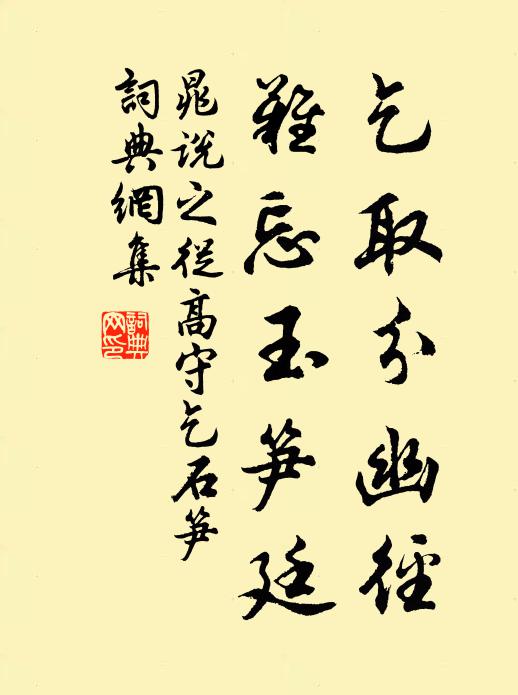 乞取分幽徑
難忘玉笋廷
晁說之從高守乞石笋
詞典網集
詞典網印